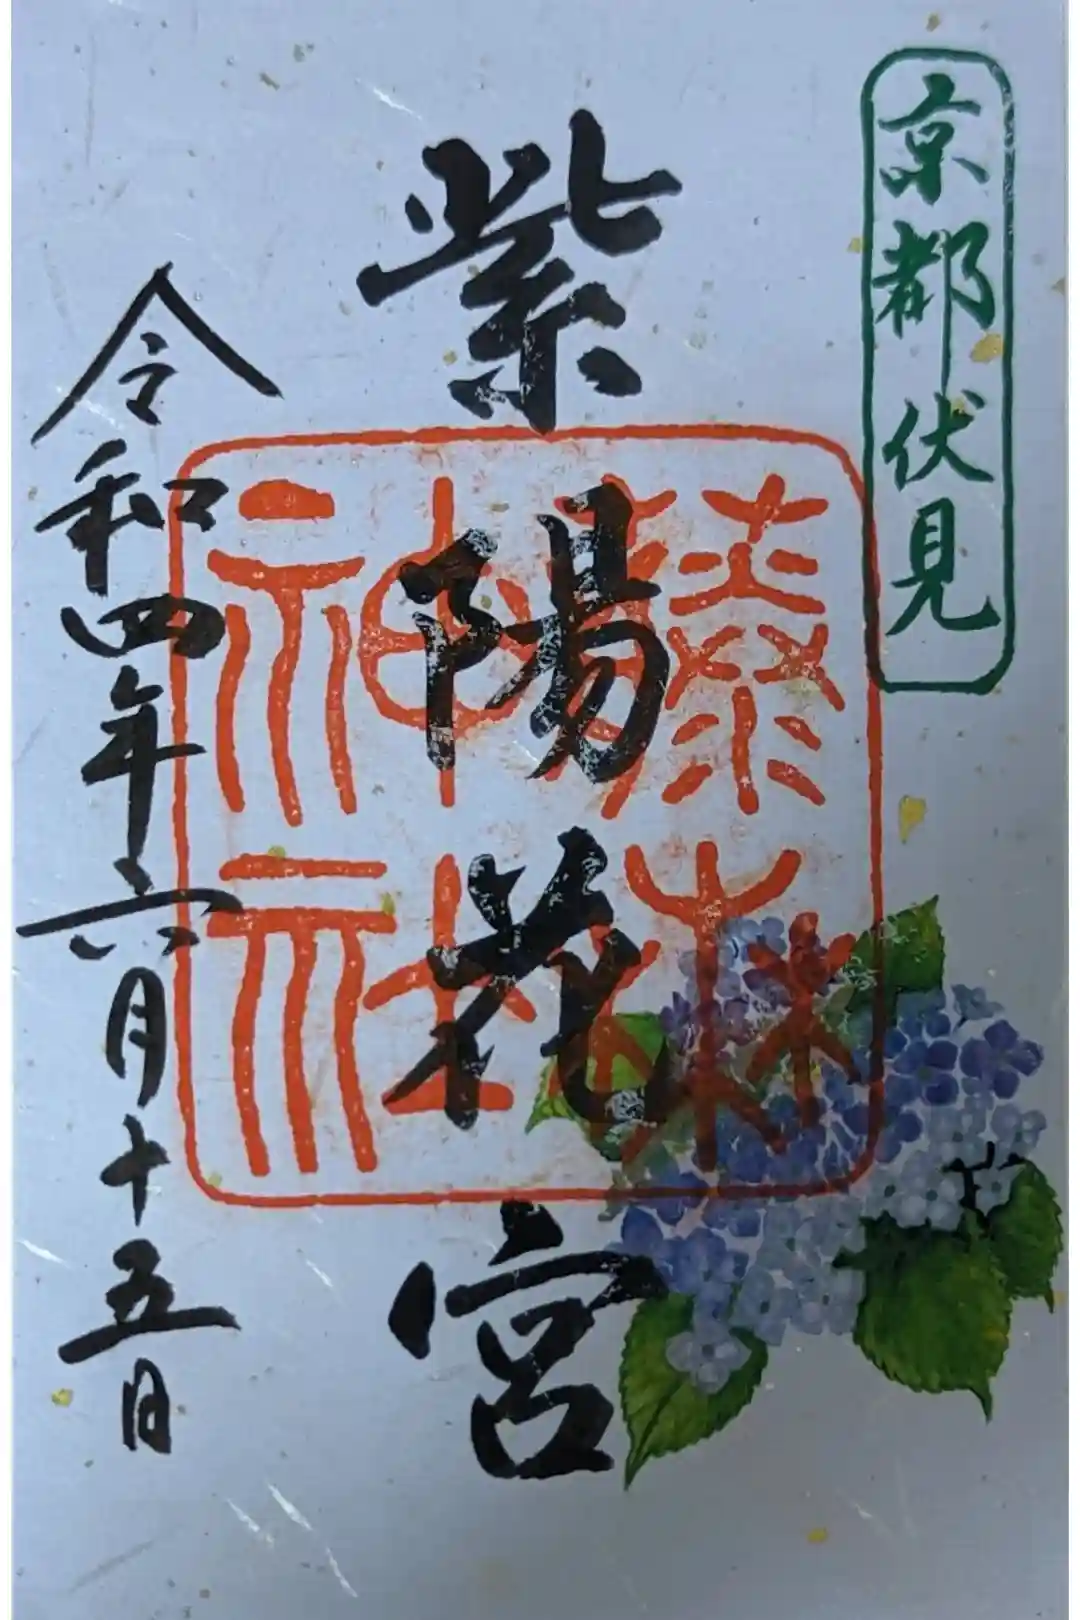 京都伏見
紫陽花宮
藤森
神社
令和四年六月十五日